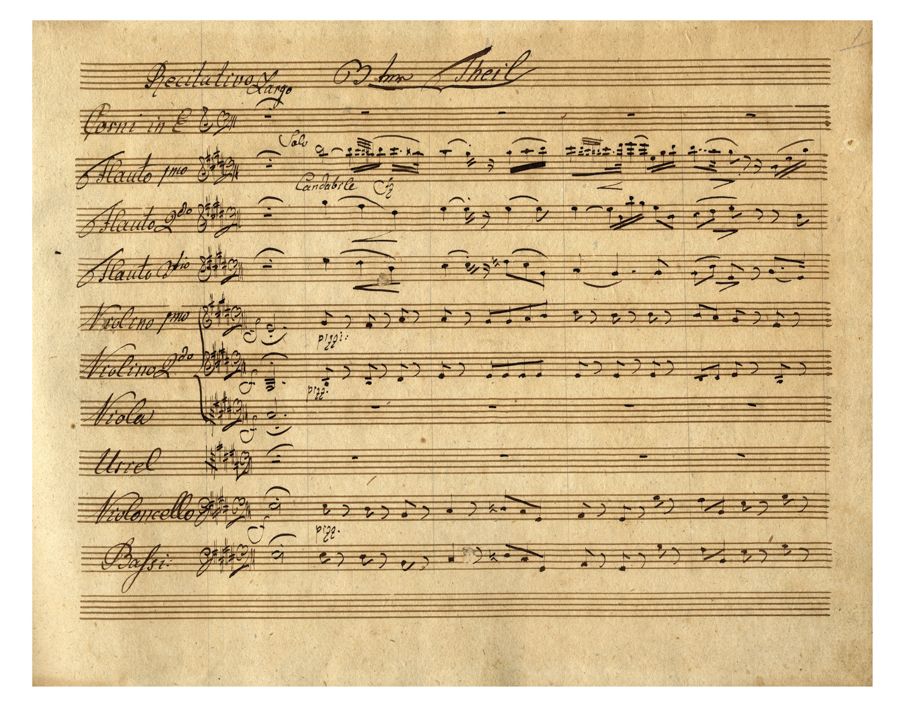 Recitativo Largo 3ter Theil
Corni in E
Solo
Flauto 1mo
Cantabile
Flauto 2do
Flauto 3tio
Violino 1mo
pizz:
Violino 2do
pizz.
Viola
Uriel
Violoncello
pizz.
Bassi: